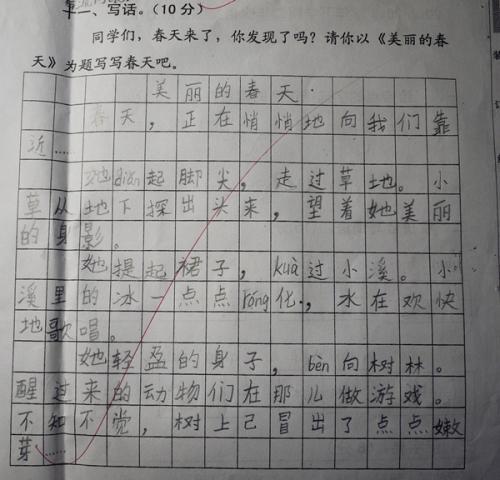 十一、写话。(10分)
同学们，春天来了，你发现了吗？请你以《美丽的春
天》为题写写春天吧。
美丽的春天
春天，正在悄悄地向我们靠
近……
她diǎn起脚尖，走过草地。小
草从地下探出头来，望着她美丽
的身影。
她提起裙子，kuà过小溪。小
溪里的冰一点点róng化，水在欢快
地歌唱。
她轻盈的身子，bēn向树林。
醒过来的动物们在那儿做游戏。
不知不觉，树上已冒出了点点嫩
芽……